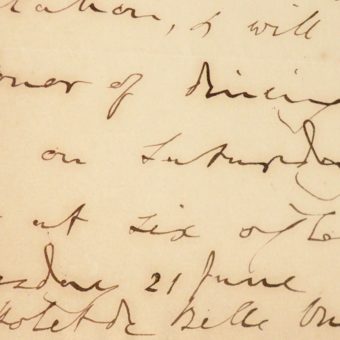 tation, & will
onor of dining
on Saturday
at six o'clo
esday 21 June
Hotel de Belle Vu